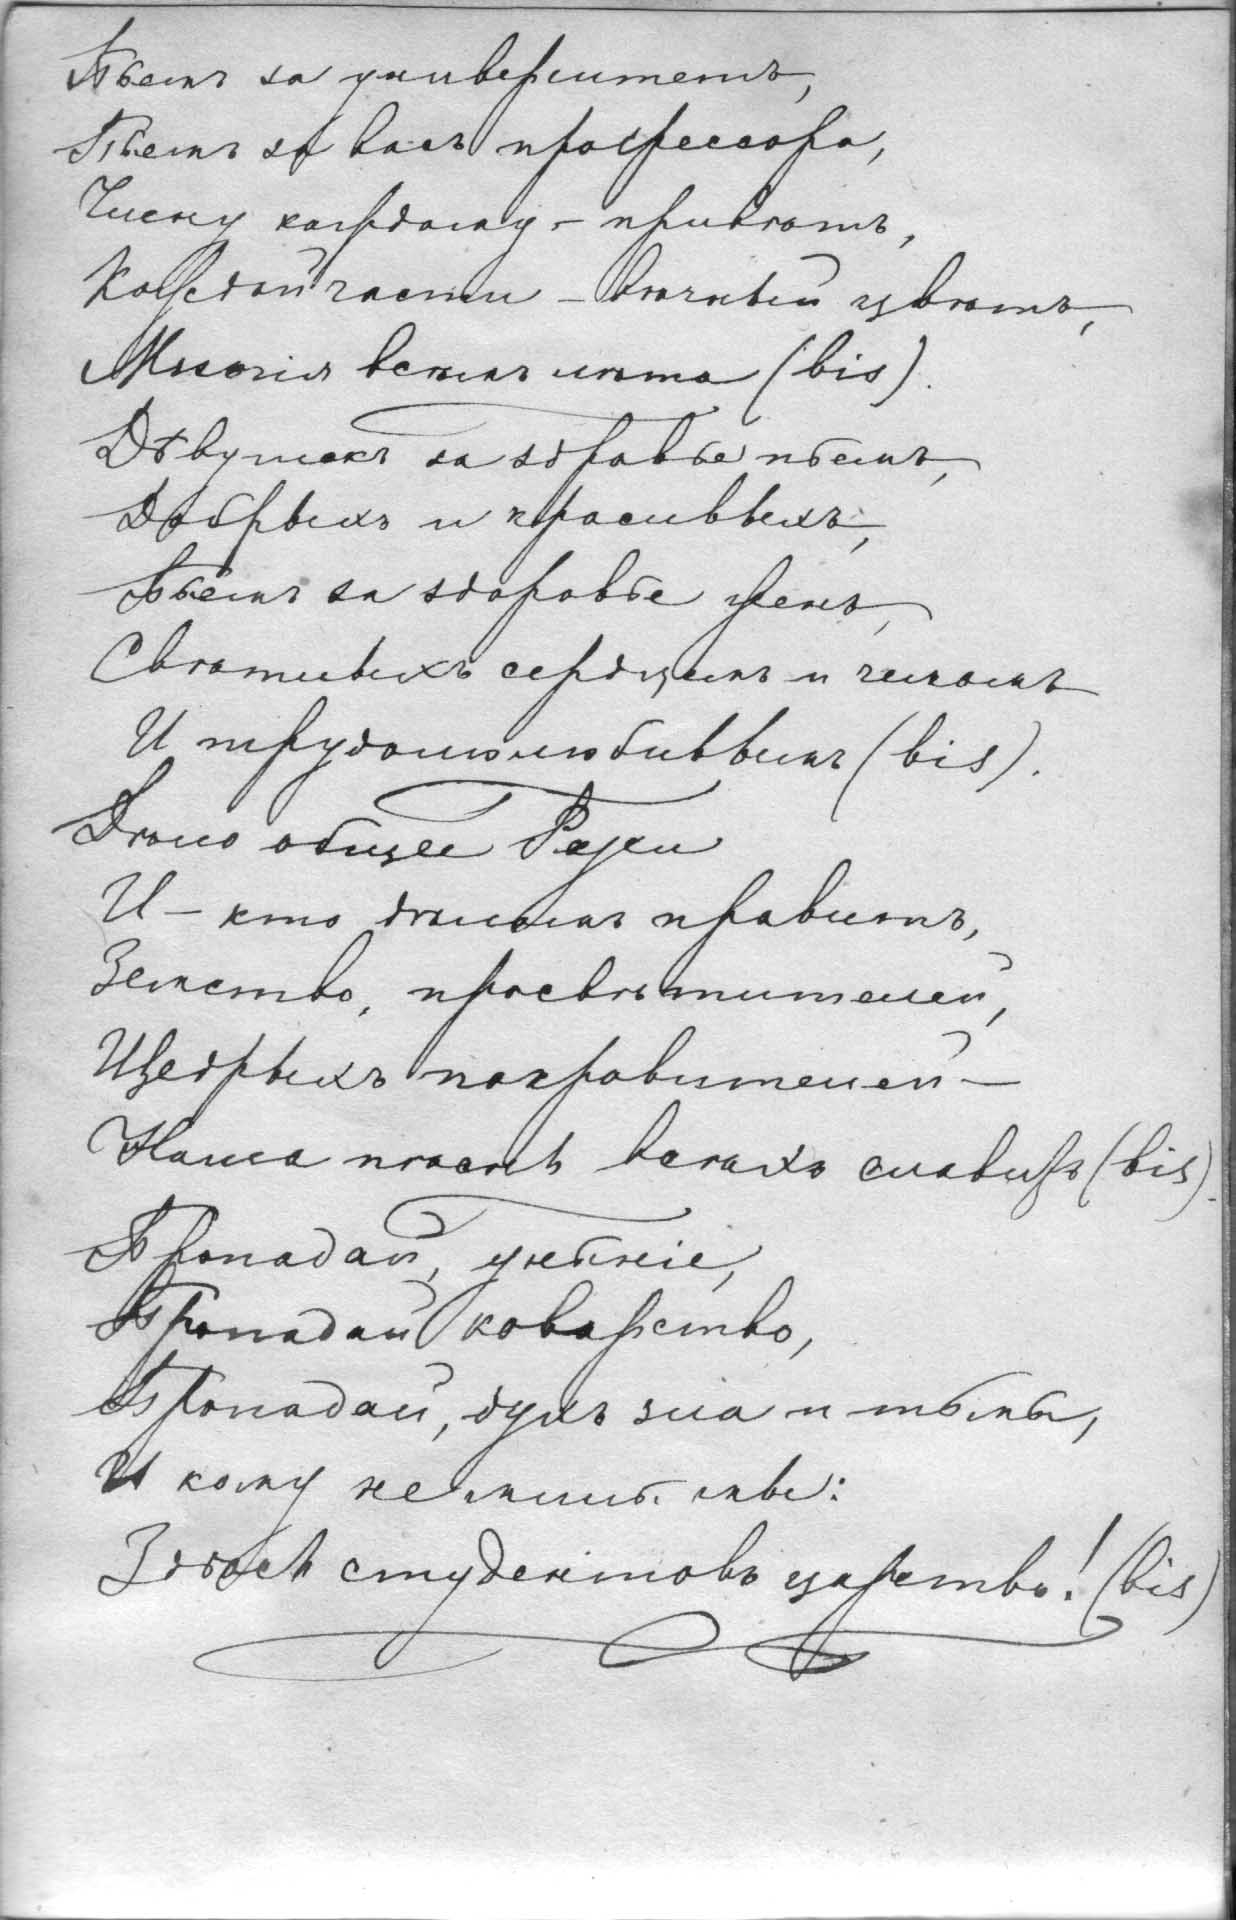 Пьемъ за университетъ,
Пьемъ за васъ профессора,
Члену каждому – привѣтъ,
Каждой части – вѣчный цвѣтъ,
Многія всѣмъ лѣта (bis).
Дѣвушекъ за здравье пьемъ,
Добрыхъ и красивыхъ,
Пьемъ за здоровье женъ,
Свѣтлыхъ сердцемъ и челомъ
И трудолюбивыхъ (bis).
Дѣло общее Руси
И – кто дѣломъ правитъ,
Земство, просвѣтителей,
Щедрыхъ покровителей –
Наша пѣснь всѣхъ славитъ (bis).
Пропадай, унынie,
Пропадай коварство,
Пропадай, духъ зла и тьмы,
И кому не милы мы:
Здѣсь студентовъ царство! (bis)